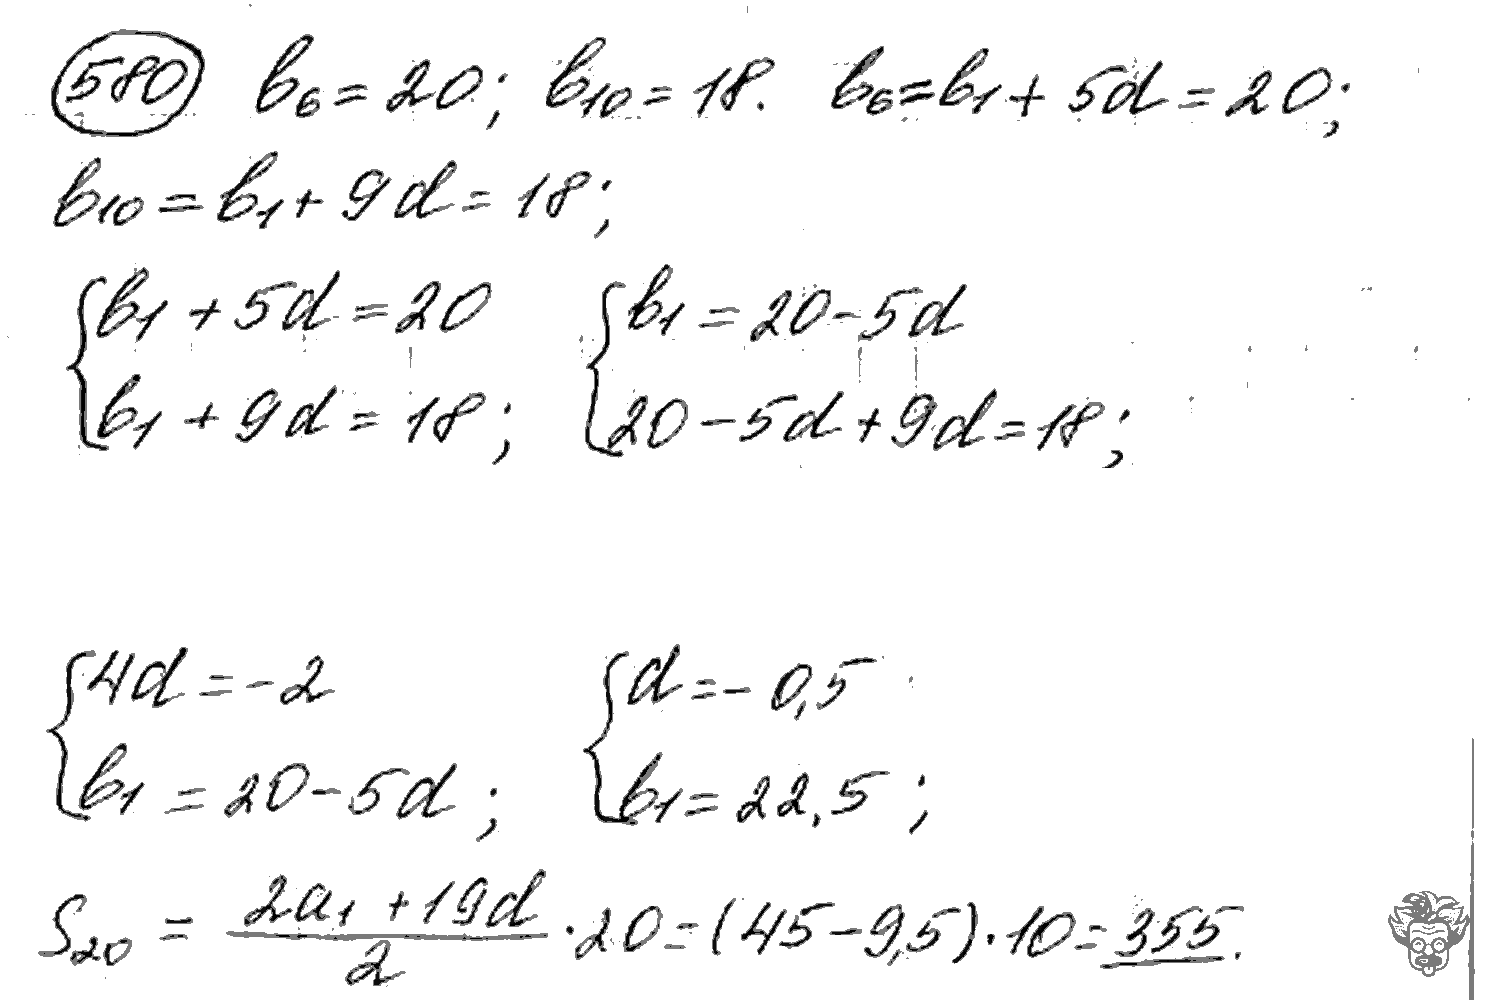 580 b₆ = 20; b₁₀ = 18. b₆ = b₁ + 5d = 20;
b₁₀ = b₁ + 9d = 18;
{b₁ + 5d = 20 {b₁ = 20 - 5d
b₁ + 9d = 18; 20 - 5d + 9d = 18;
{4d = -2 {d = -0,5
b₁ = 20 - 5d; b₁ = 22,5;
S₂₀ = (2a₁ + 19d)/2 · 20 = (45 - 9,5) · 10 = 355.